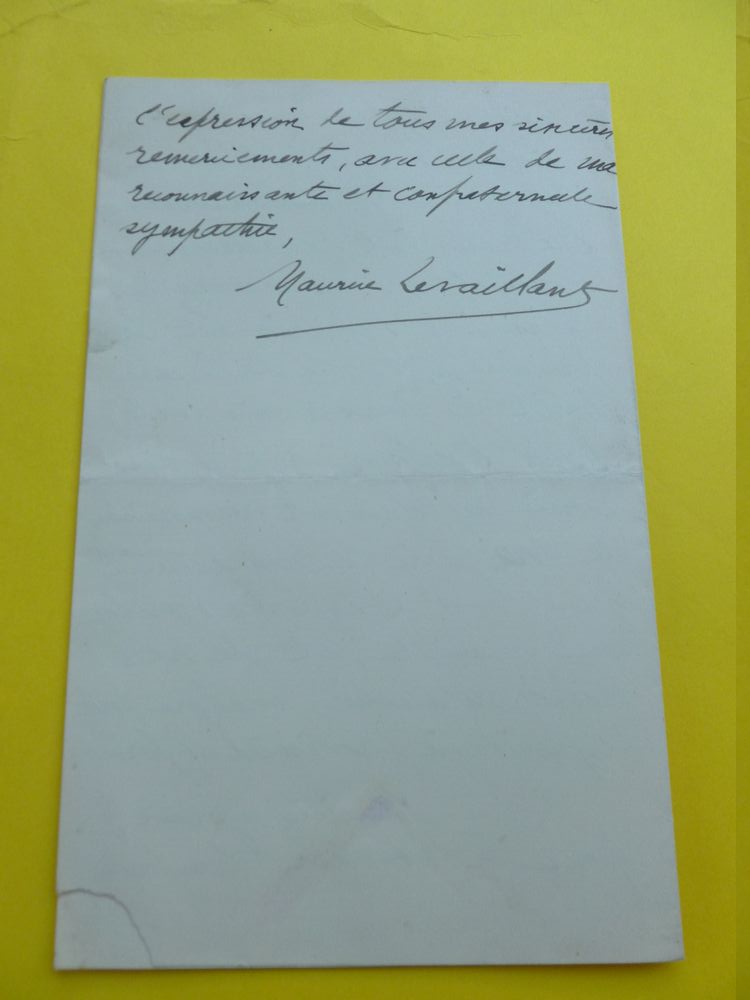 l'expression de tous mes sincères
remerciements, avec celle de ma
reconnaissante et confraternelle
sympathie,
Maurice Levaillant